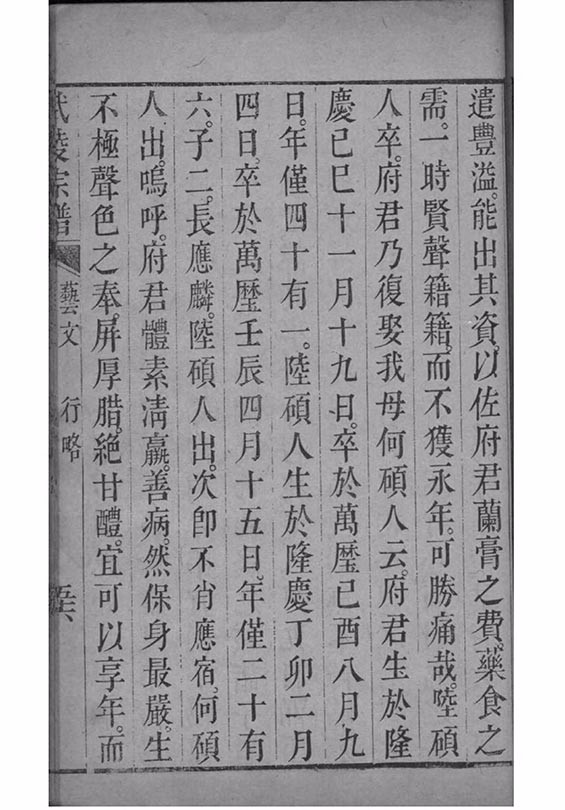 遣豐溢。能出其資。以佐府君蘭膏之費。藥食之
需。一時賢聲籍籍。而不獲永年。可勝痛哉。陸碩
人卒。府君乃復娶我母何碩人云。府君生於隆
慶己巳十一月十九日。卒於萬曆己酉八月九
日。年僅四十有一。陸碩人生於隆慶丁卯二月
四日。卒於萬曆壬辰四月十五日。年僅二十有
六。子二。長應麟。陸碩人出。次卽不肖應宿。何碩
人出。嗚呼。府君體素淸羸。善病。然保身最嚴。生
不極聲色之奉。屛厚腊。絕甘醴。宜可以享年。而
武陵宗譜 藝文 行略